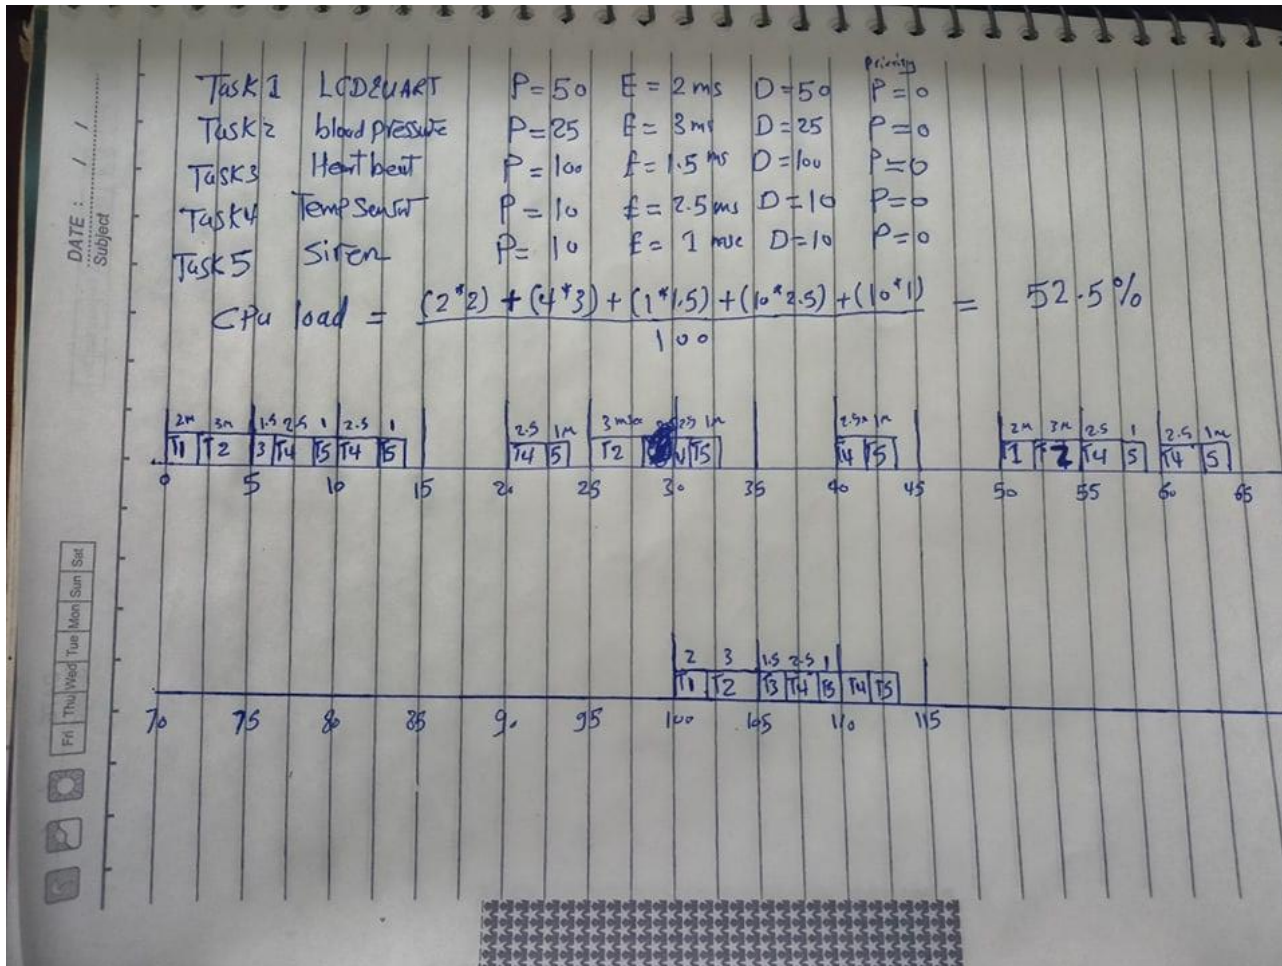 DATE : / /
Subject
Fri Thu Wed Tue Mon Sun Sat
priority
Task 1 LCD&UART P=50 E = 2 ms D=50 P=0
Task 2 blood pressure P=25 E = 3ms D=25 P=0
Task3 Heart beat P=100 E=1.5 ms D=100 P=0
Task4 Temp Sensor P=10 E=2.5ms D=10 P=0
Task 5 Siren P=10 E= 1 msc D=10 P=0
CPu load = (2*2) + (4*3) + (1*1.5) + (10*2.5) + (10*1) = 52.5%
100
2m 3m 1.5 2.5 1 2.5 1 2.5 1m 3 msc 2.5 1m 2.5 1m 2m 3m 2.5 1 2.5 1m
T1 T2 3 T4 T5 T4 T5 T4 5 T2 T5 T4 T5 1 T2 T4 5 T4 5
0 5 10 15 20 25 30 35 40 45 50 55 60 65
2 3 1.5 2.5 1
T1 T2 T3 T4 T5 T4 T5
70 75 80 85 90 95 100 105 110 115